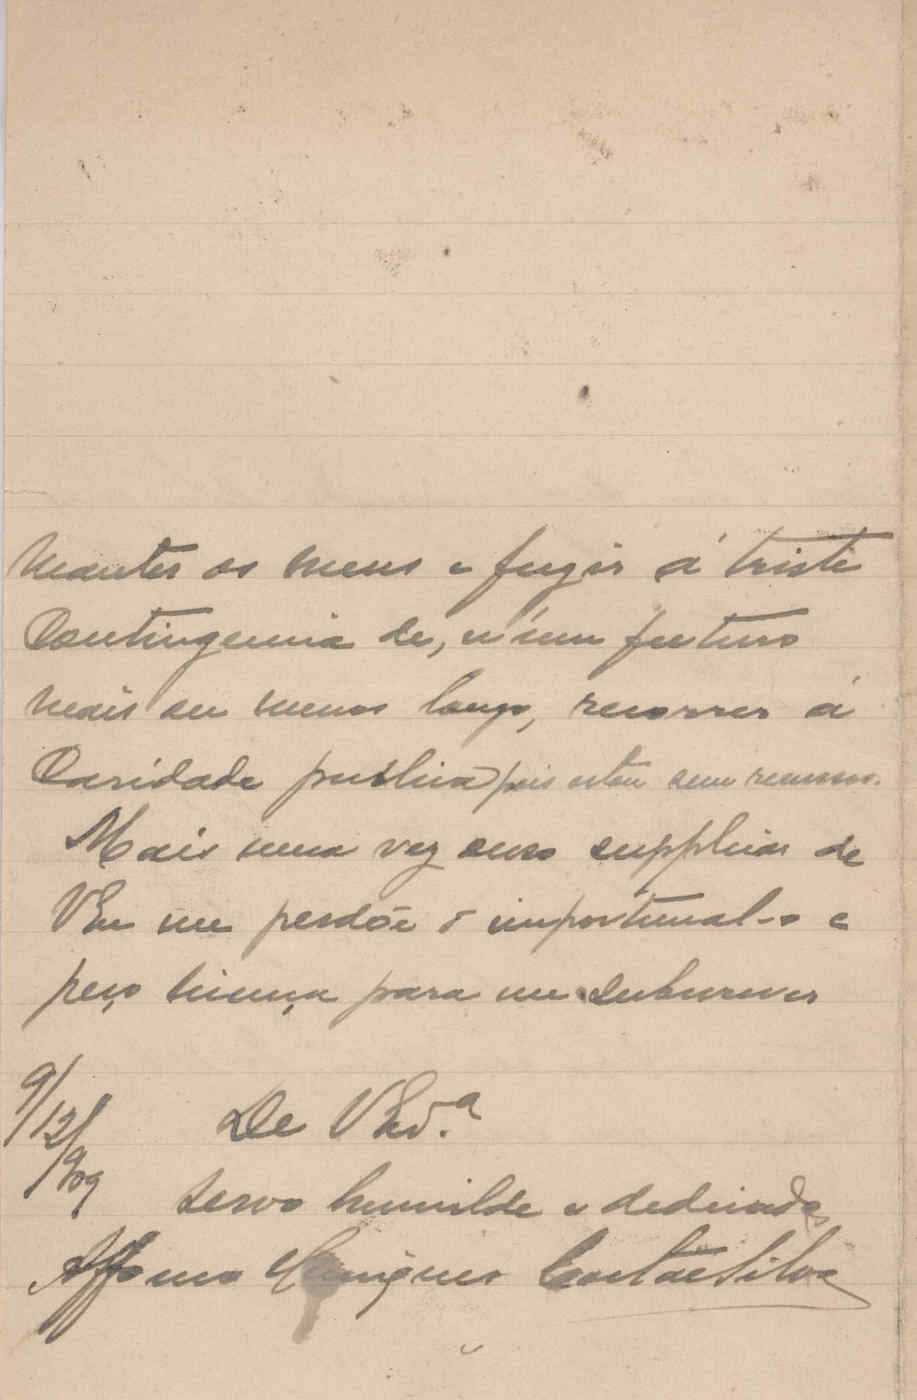 manter os meus e fugir á triste
Contingencia de, n'um futuro
mais ou menos longo, recorrer á
Caridade publica pois estou sem recursos.
Mais uma vez ouso supplicar de
VEx me perdôe o importunal-o e
peço licença para me subscrever
9/12/909
De VEx.ª
servo humilde e dedicado
Affonso Henriques Costa e Silva